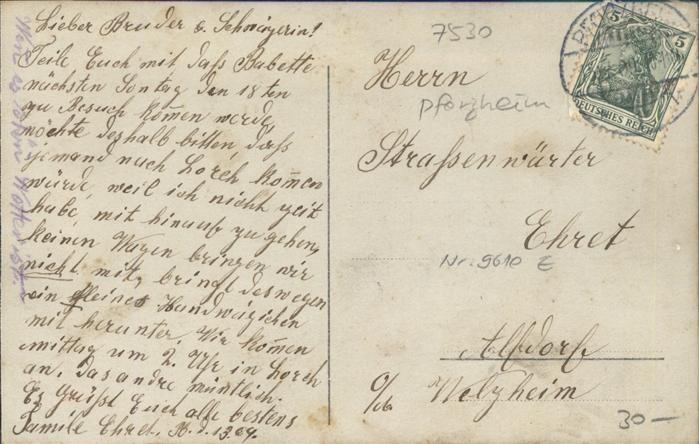 Lieber Bruder u. Schwägerin!
Teile Euch mit daß Babette
nächsten Sontag den 18ten
zu Besuch kom̄en werde,
möchte deshalb bitten, daß
jemand nach Lorch kom̄en
würde, weil ich nicht Zeit
habe, mit hinauf zu gehen,
keinen Wagen bringen wir
nicht mit, bringt deswegen
ein kleines Handwägelchen
mit herunter. Wir kom̄en
mittag um 2 Uhr in Lorch
an, das andre mündlich.
Es Grüßt Euch alle bestens
Familie Ehret.
7530
Herrn
Pforzheim
Strassenwärter
Ehret
Nr. 9610 E
Alfdorf
Welzheim
30—
5 5
DEUTSCHES REICH